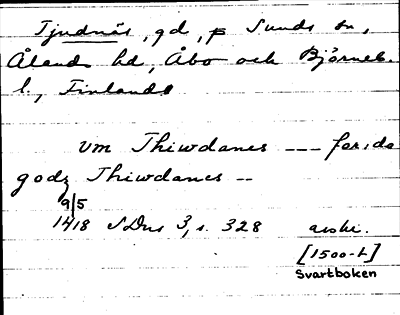 Tjudnäs, gd, p Sunds sn,
Ålands hd, Åbo och Björneb.
l., Finland
vm Thiwdanes --- for:da
godz Thiwdanes --
9/5
1418 SDns 3, s. 328 avskr.
[1500-t]
Svartboken